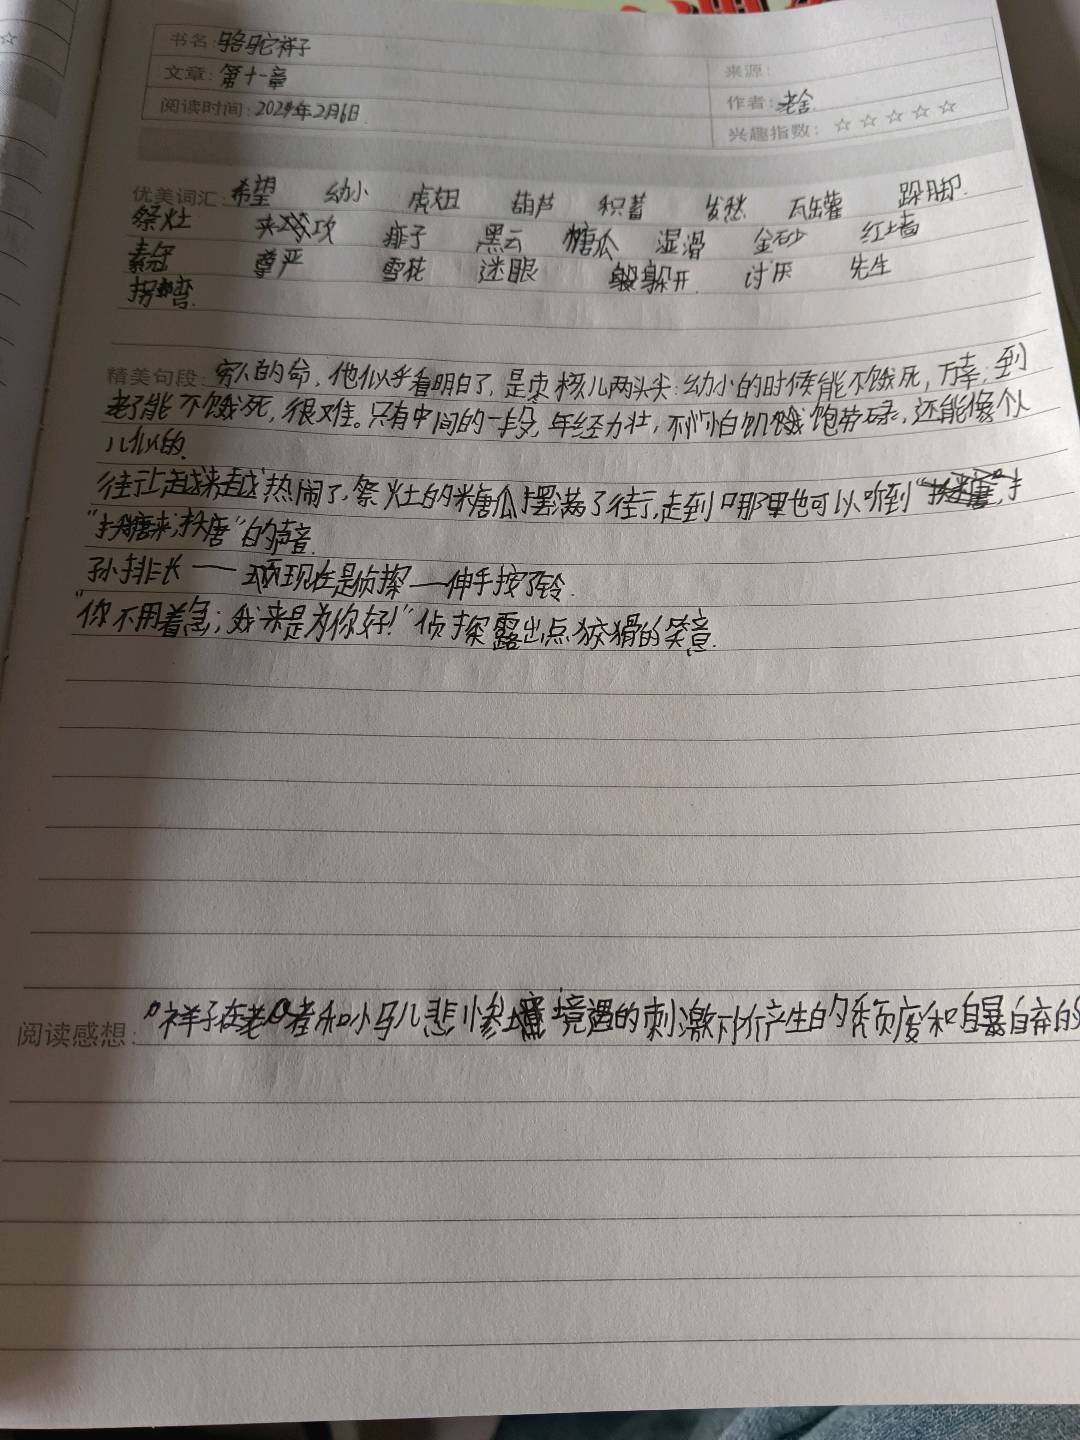 书名:骆驼祥子
文章:第十一章 来源:
阅读时间:2024年2月6日 作者:老舍
兴趣指数:☆☆☆☆☆
优美词汇:希望 幼小 虎妞 葫芦 积蓄 发愁 瓦罐 跺脚
祭灶 夹攻 痱子 黑云 糖瓜 湿滑 金砂 红墙
尊严 雪花 迷眼 躲开 讨厌 先生
拐弯
精美句段:穷人的命,他似乎看明白了,是枣核儿两头尖:幼小的时候能不饿死,万幸;到
老了能不饿死,很难。只有中间的一段,年轻力壮,不怕饥饿饱劳碌,还能像个
儿似的
街上越来越热闹了,祭灶的糖瓜摆满了街,走到哪里也可以听到"扌
"扌糖来,扌唐"的声音.
孙排长——现在是侦探——伸手按了铃.
"你不用着急;我来是为你好!"侦探露出点狡猾的笑意.
阅读感想:祥子在老者和小马儿悲惨境遇的刺激下产生的颓废和自暴自弃的